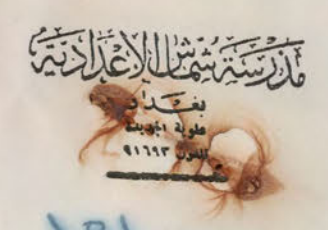 مَدْرَسَة شَمَاش الاِعْدَادِيَّة
بغــداد
علوية الجديدة
تلفون ٩١٦٩٣